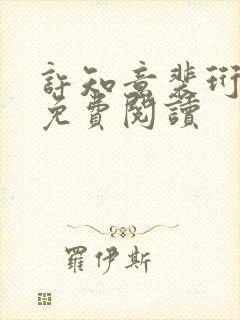 許知意裴珩
免費閱讀
羅伊斯